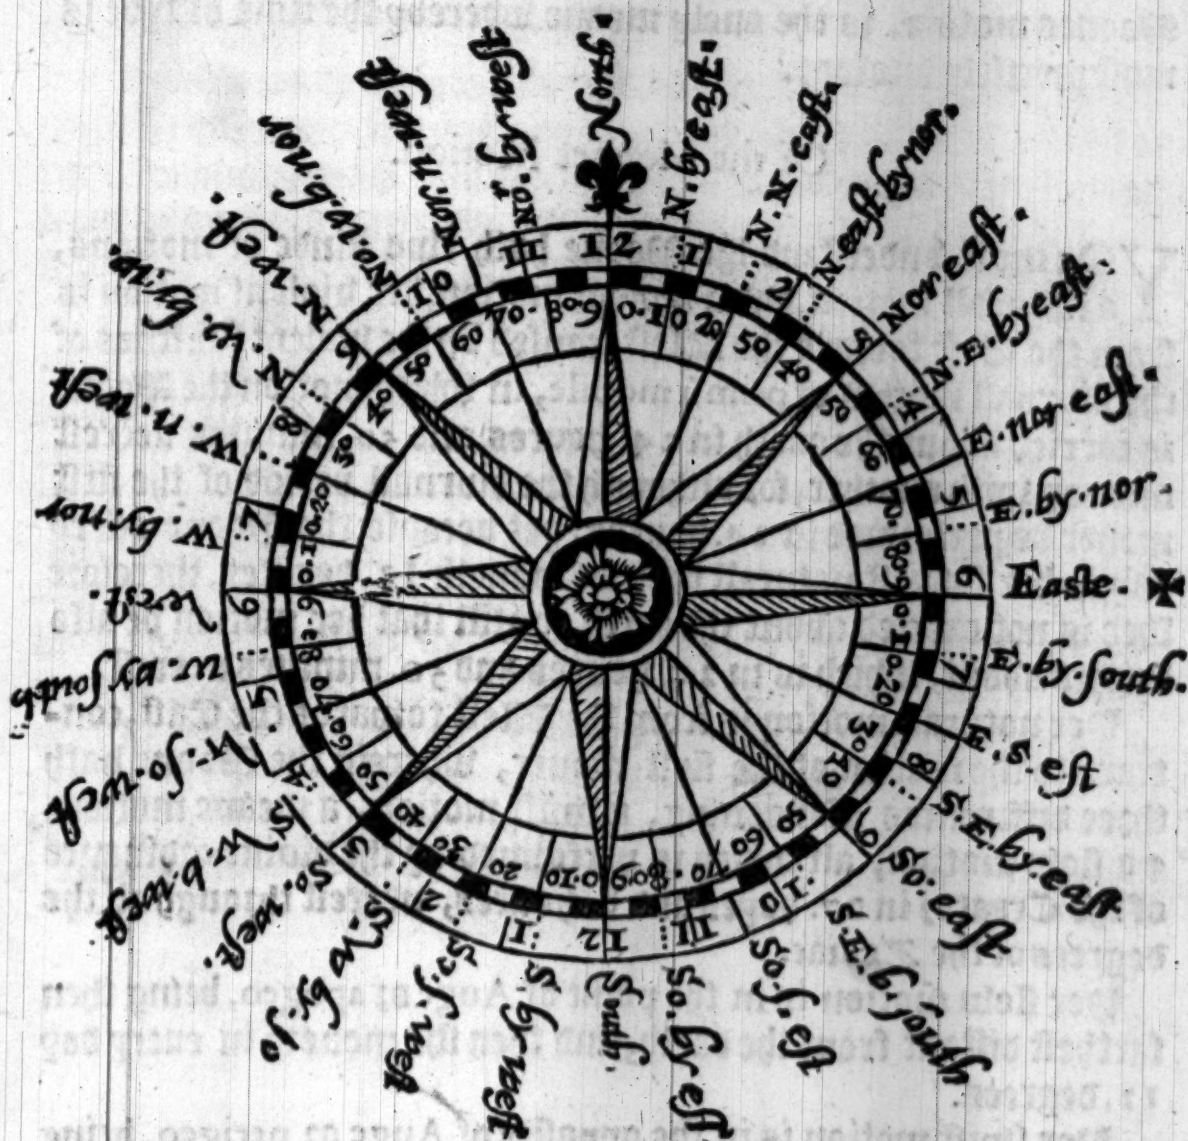 Nort.
N. by east.
N. N. east.
N. east by nor.
Nor east.
N. E. by east:
E. nor east.
E. by. nor.
Easte.
E. by. south.
E. s. est
S. E. by. east
So: east
S E. b, south
So. s, est
So. by est
South.
S. by west
S: s, west
S. w by, so
So. west.
S. w. b. west
W. so. west
w. by south
West.
w. by: nor
w. n. west
N. w. by: w.
N. w. west.
No. w. b. nor
Nor: n. west
No. by west
12
1
2
3
4
5
6
7
8
9
10
11
12
1
2
3
4
5
6
7
8
9
10
11
0. 10 20 30 40 50 60 70. 80 90
0. 10. 20 30 40 50 60 70. 80. 90
0. 10 20 30 40 50 60. 70 80. 90
0. 10. 20 30 40 50 60 70. 80 90